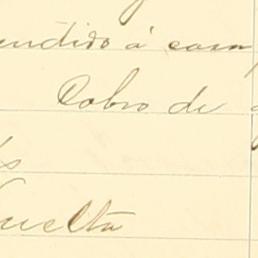 endido á cam
Cobro de
s
vuelta